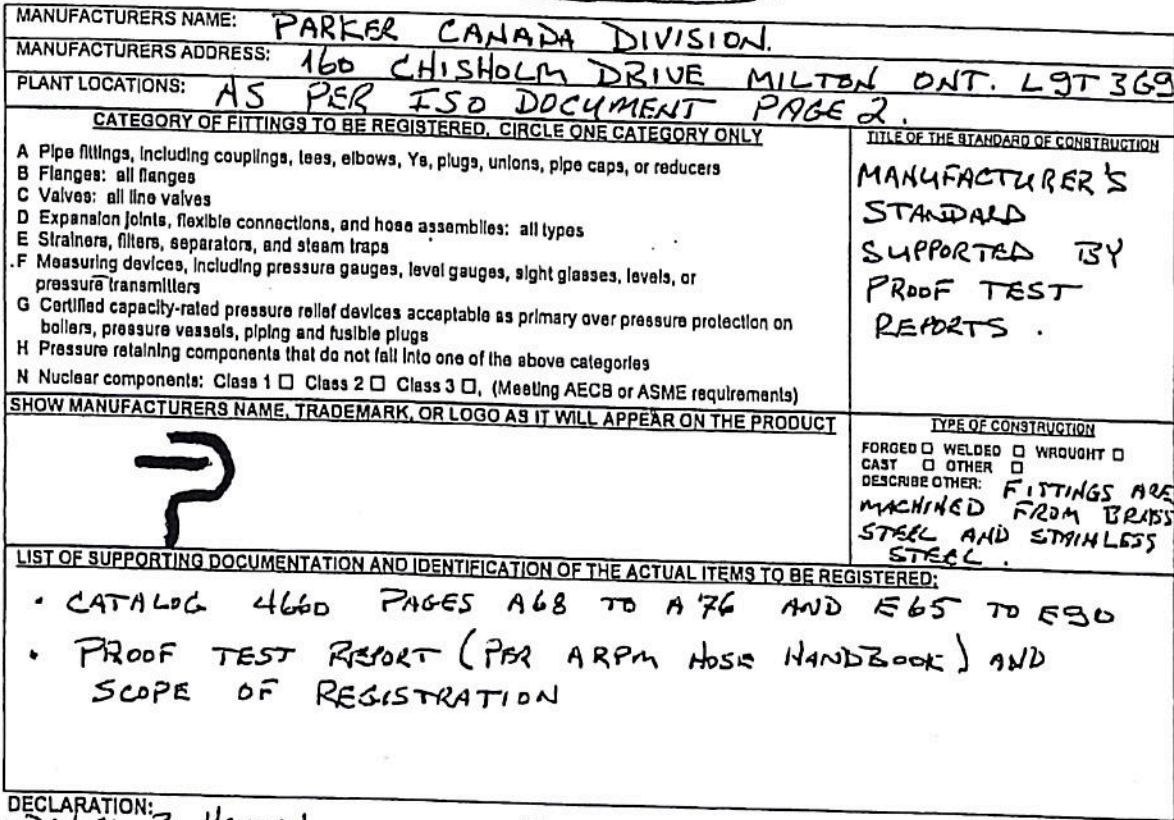 MANUFACTURERS NAME: PARKER CANADA DIVISION.
MANUFACTURERS ADDRESS: 160 CHISHOLM DRIVE MILTON ONT. L9T 3G9
PLANT LOCATIONS: AS PER ISO DOCUMENT PAGE 2.
CATEGORY OF FITTINGS TO BE REGISTERED, CIRCLE ONE CATEGORY ONLY
A Pipe fittings, including couplings, tees, elbows, Ys, plugs, unions, pipe caps, or reducers
B Flanges: all flanges
C Valves: all line valves
D Expansion joints, flexible connections, and hose assemblies: all types
E Strainers, filters, separators, and steam traps
F Measuring devices, including pressure gauges, level gauges, sight glasses, levels, or
pressure transmitters
G Certified capacity-rated pressure relief devices acceptable as primary over pressure protection on
boilers, pressure vessels, piping and fusible plugs
H Pressure retaining components that do not fall into one of the above categories
N Nuclear components: Class 1 ☐ Class 2 ☐ Class 3 ☐, (Meeting AECB or ASME requirements)
TITLE OF THE STANDARD OF CONSTRUCTION
MANUFACTURER'S
STANDARD
SUPPORTED BY
PROOF TEST
REPORTS.
SHOW MANUFACTURERS NAME, TRADEMARK, OR LOGO AS IT WILL APPEAR ON THE PRODUCT
TYPE OF CONSTRUCTION
FORGED ☐ WELDED ☐ WROUGHT ☐
CAST ☐ OTHER ☐
DESCRIBE OTHER: FITTINGS ARE
MACHINED FROM BRASS
STEEL AND STAINLESS
STEEL.
LIST OF SUPPORTING DOCUMENTATION AND IDENTIFICATION OF THE ACTUAL ITEMS TO BE REGISTERED:
• CATALOG 4660 PAGES A68 TO A76 AND E65 TO E90
• PROOF TEST REPORT (PER ARPM HOSE HANDBOOK) AND
SCOPE OF REGISTRATION
DECLARATION: